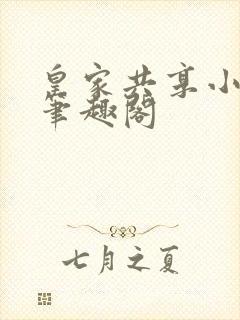 皇家共享小
筆趣閣
七月之夏